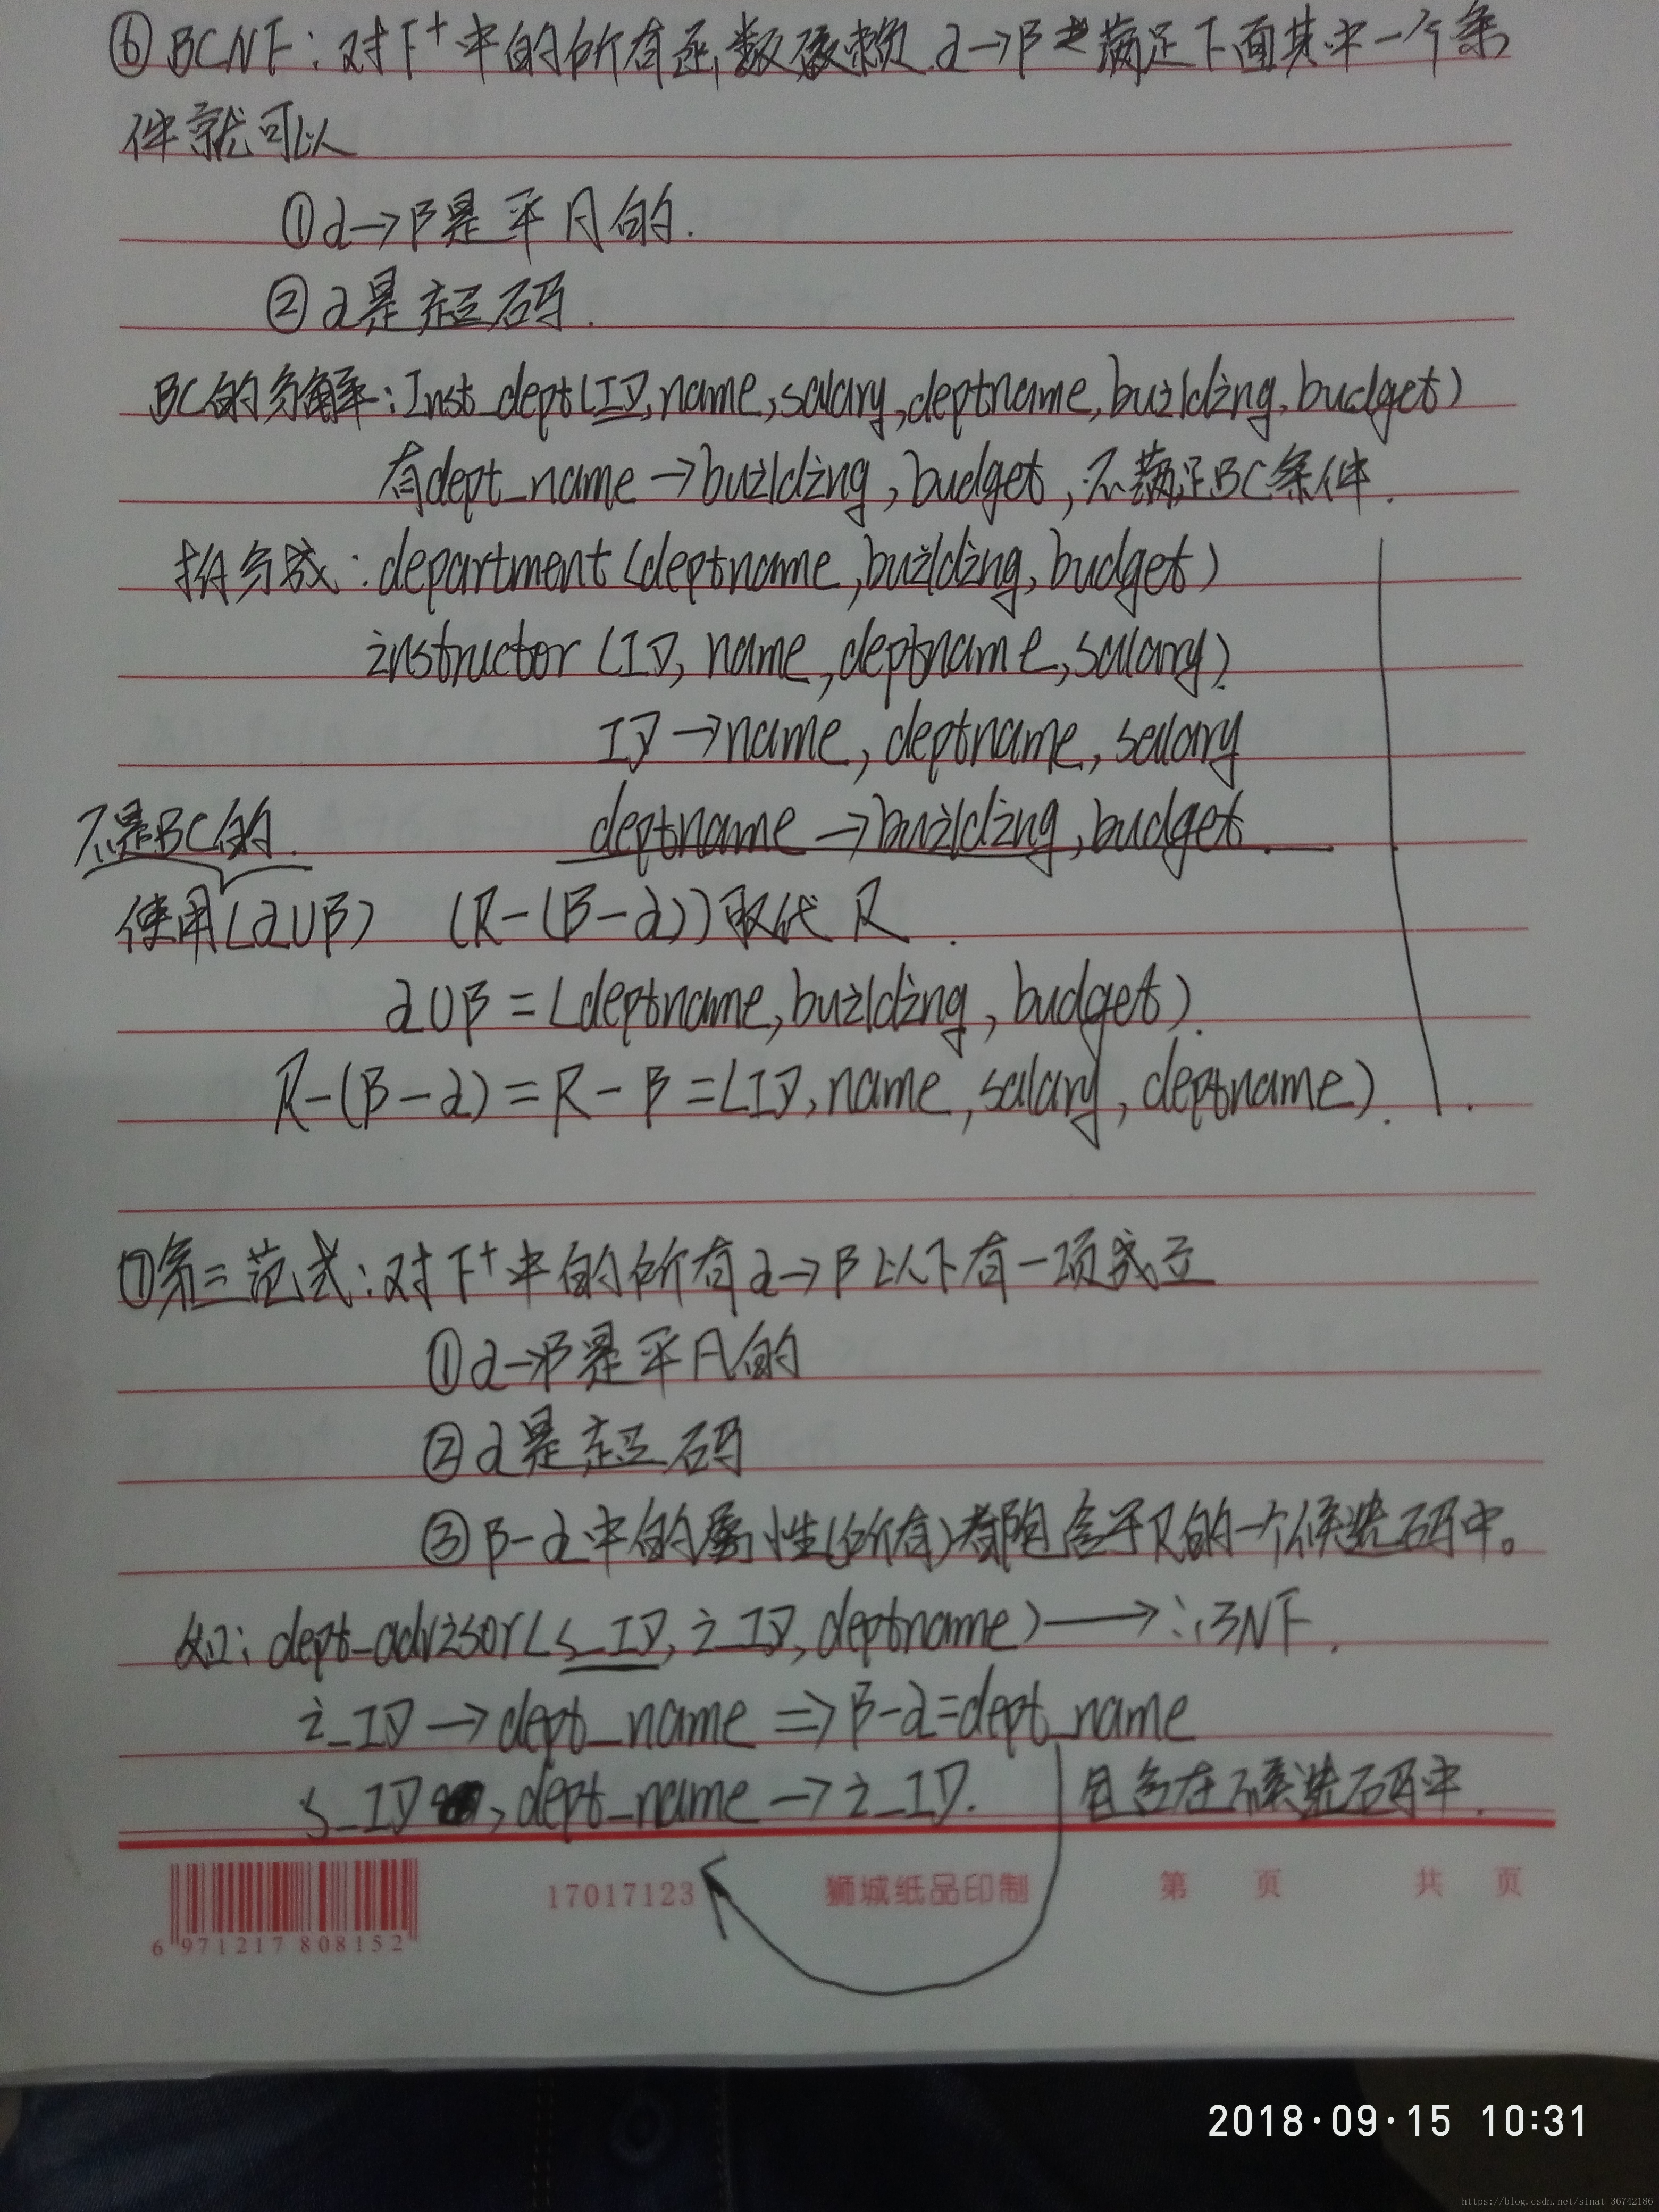 ⑥ BCNF：对F⁺中的所有函数依赖 α→β 满足下面其中一个条
件就可以
①α→β是平凡的.
②α是超码.
BC的分解：Inst_dept(ID,name,salary,deptname,building,budget)
有dept_name→building,budget,不满足BC条件.
拆分成：department(deptname,building,budget)
instructor(ID,name,deptname,salary).
ID→name,deptname,salary
不是BC的. deptname→building,budget.
使用(α∪β) (R-(β-α))取代R.
α∪β=(deptname,building,budget).
R-(β-α)=R-β=(ID,name,salary,deptname).
⑦第三范式：对F⁺中的所有α→β以下有一项成立
①α→β是平凡的
②α是超码
③β-α中的属性(所有)都包含于R的一个候选码中。
如：dept_advisor(s_ID,i_ID,deptname)→∴3NF.
i_ID→dept_name⇒β-α=dept_name
s_ID,dept_name→i_ID. 包含在候选码中.
6 971217 808152
17017123 狮城纸品印制 第 页 共 页
2018·09·15 10:31
https://blog.csdn.net/sinat_36742186